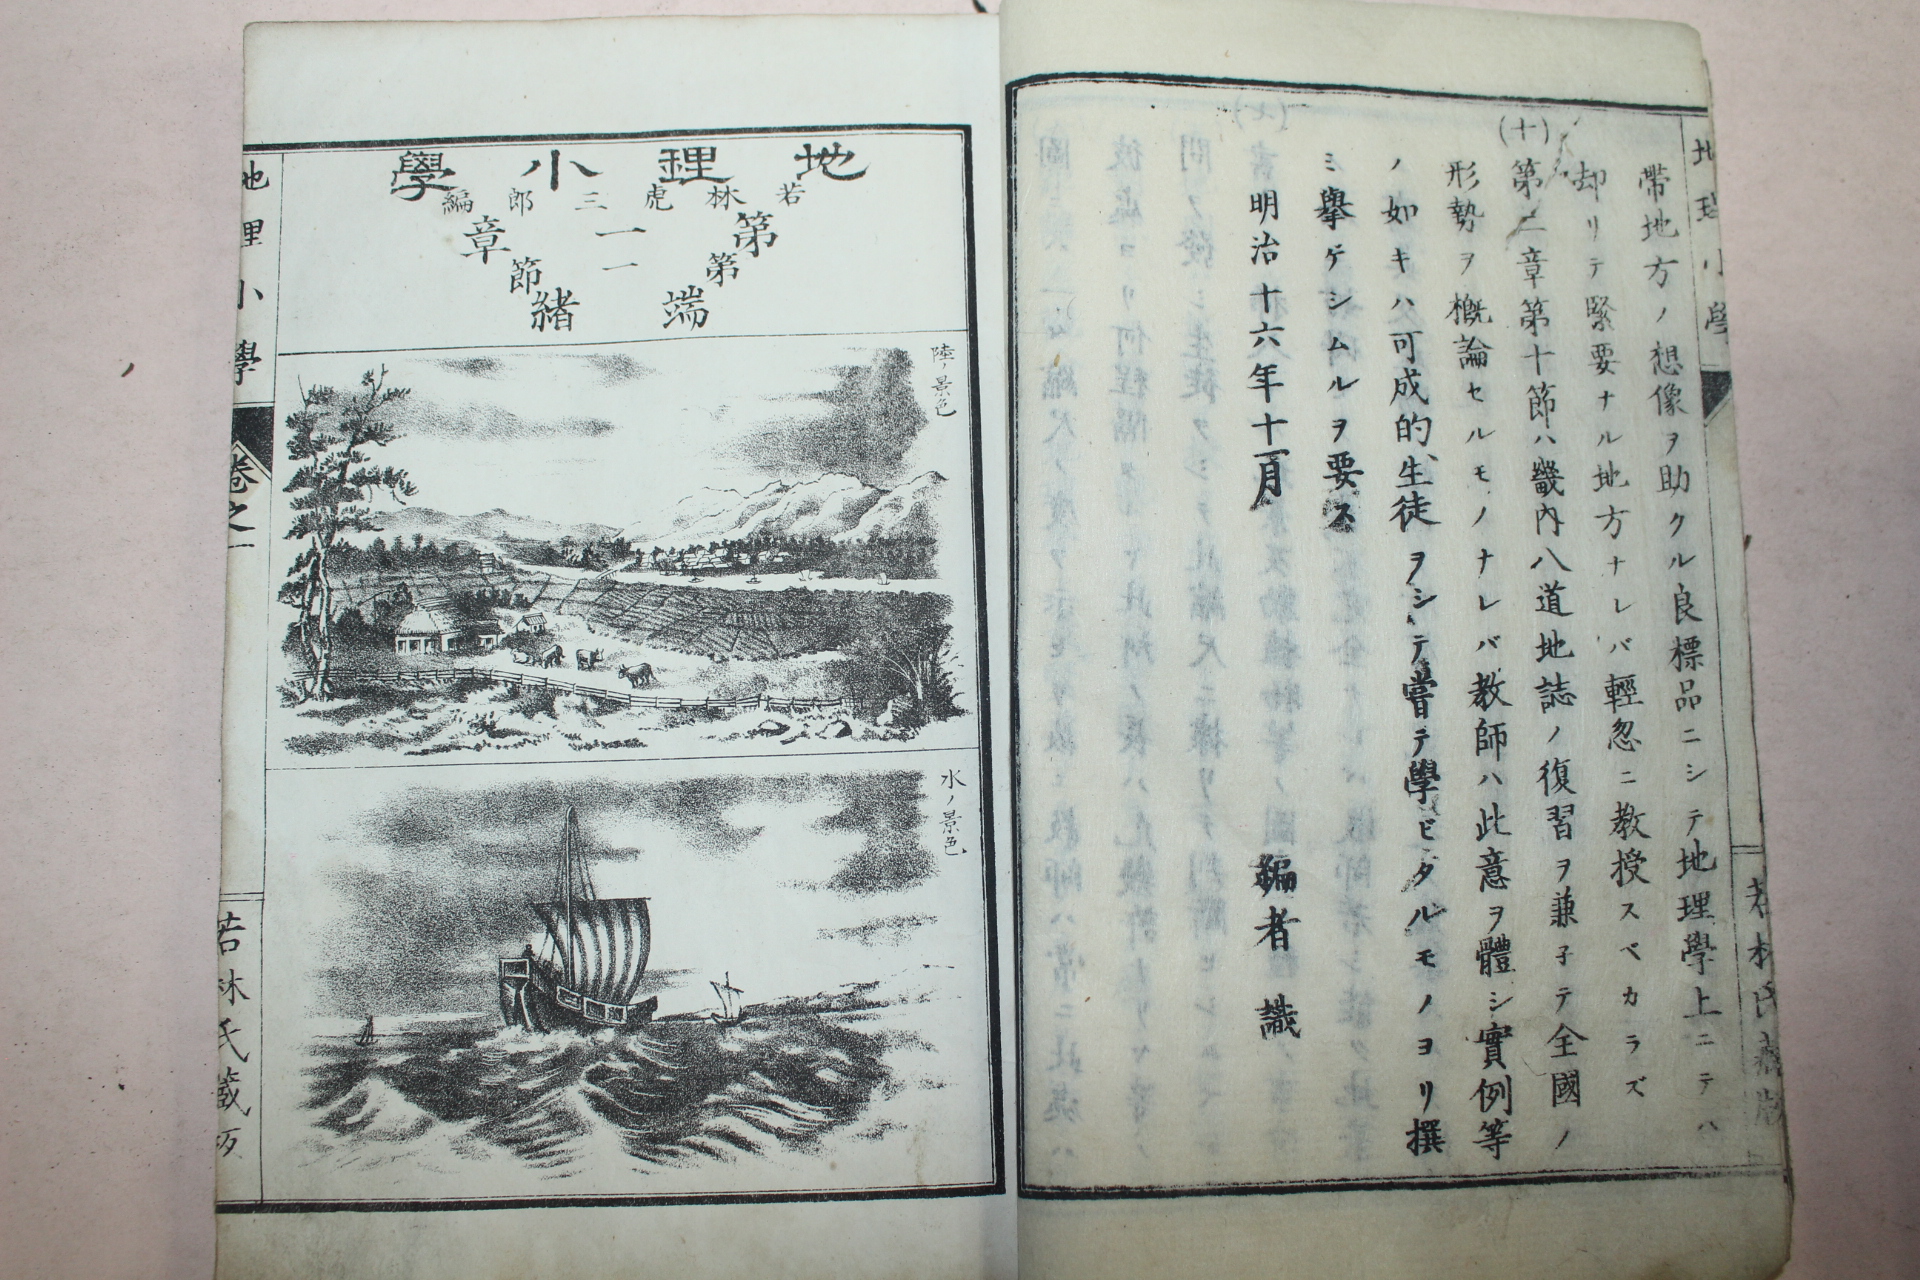 帶地方ノ想像ヲ助クル良標品ニシテ地理學上ニテハ
却リテ緊要ナル地方ナレバ輕忽ニ教授スベカラズ
(十)第二章第十節ハ畿内八道地誌ノ復習ヲ兼子テ全國ノ
形勢ヲ概論セルモノナレバ教師ハ此意ヲ體シ實例等
ノ如キハ可成的生徒ヲシテ嘗テ學ビタルモノヨリ撰
ミ擧ゲシムルヲ要ス
明治十六年十一月
編者識
地理小學
若林虎三郎編
第一章
第一節
端緒
陸ノ景色
水ノ景色
地理小學
卷之一
若林氏藏版
地理小學
若林氏藏版